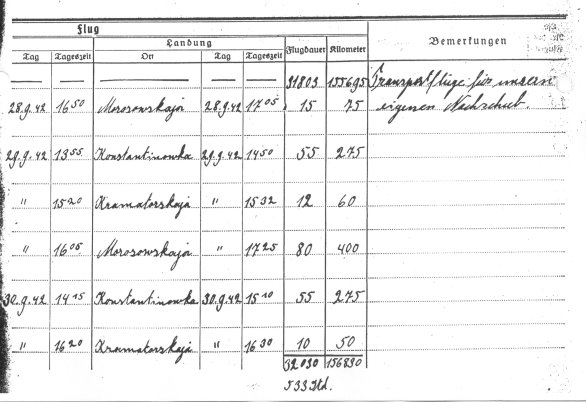 Flug
Landung
Tag Tageszeit Ort Tag Tageszeit Flugdauer Kilometer Bemerkungen
31803 155695 Transportflüge für unsern
28.9.42 16 50 Morosowskaja 28.9.42 17 05 15 75 eigenen Nachschub.
29.9.42 13 55 Konstantinowka 29.9.42 14 50 55 275
" 15 20 Kramatorskaja " 15 32 12 60
" 16 05 Morosowskaja " 17 25 80 400
30.9.42 14 15 Konstantinowka 30.9.42 15 10 55 275
" 16 20 Kramatorskaja " 16 30 10 50
32030 156830
533 Std.